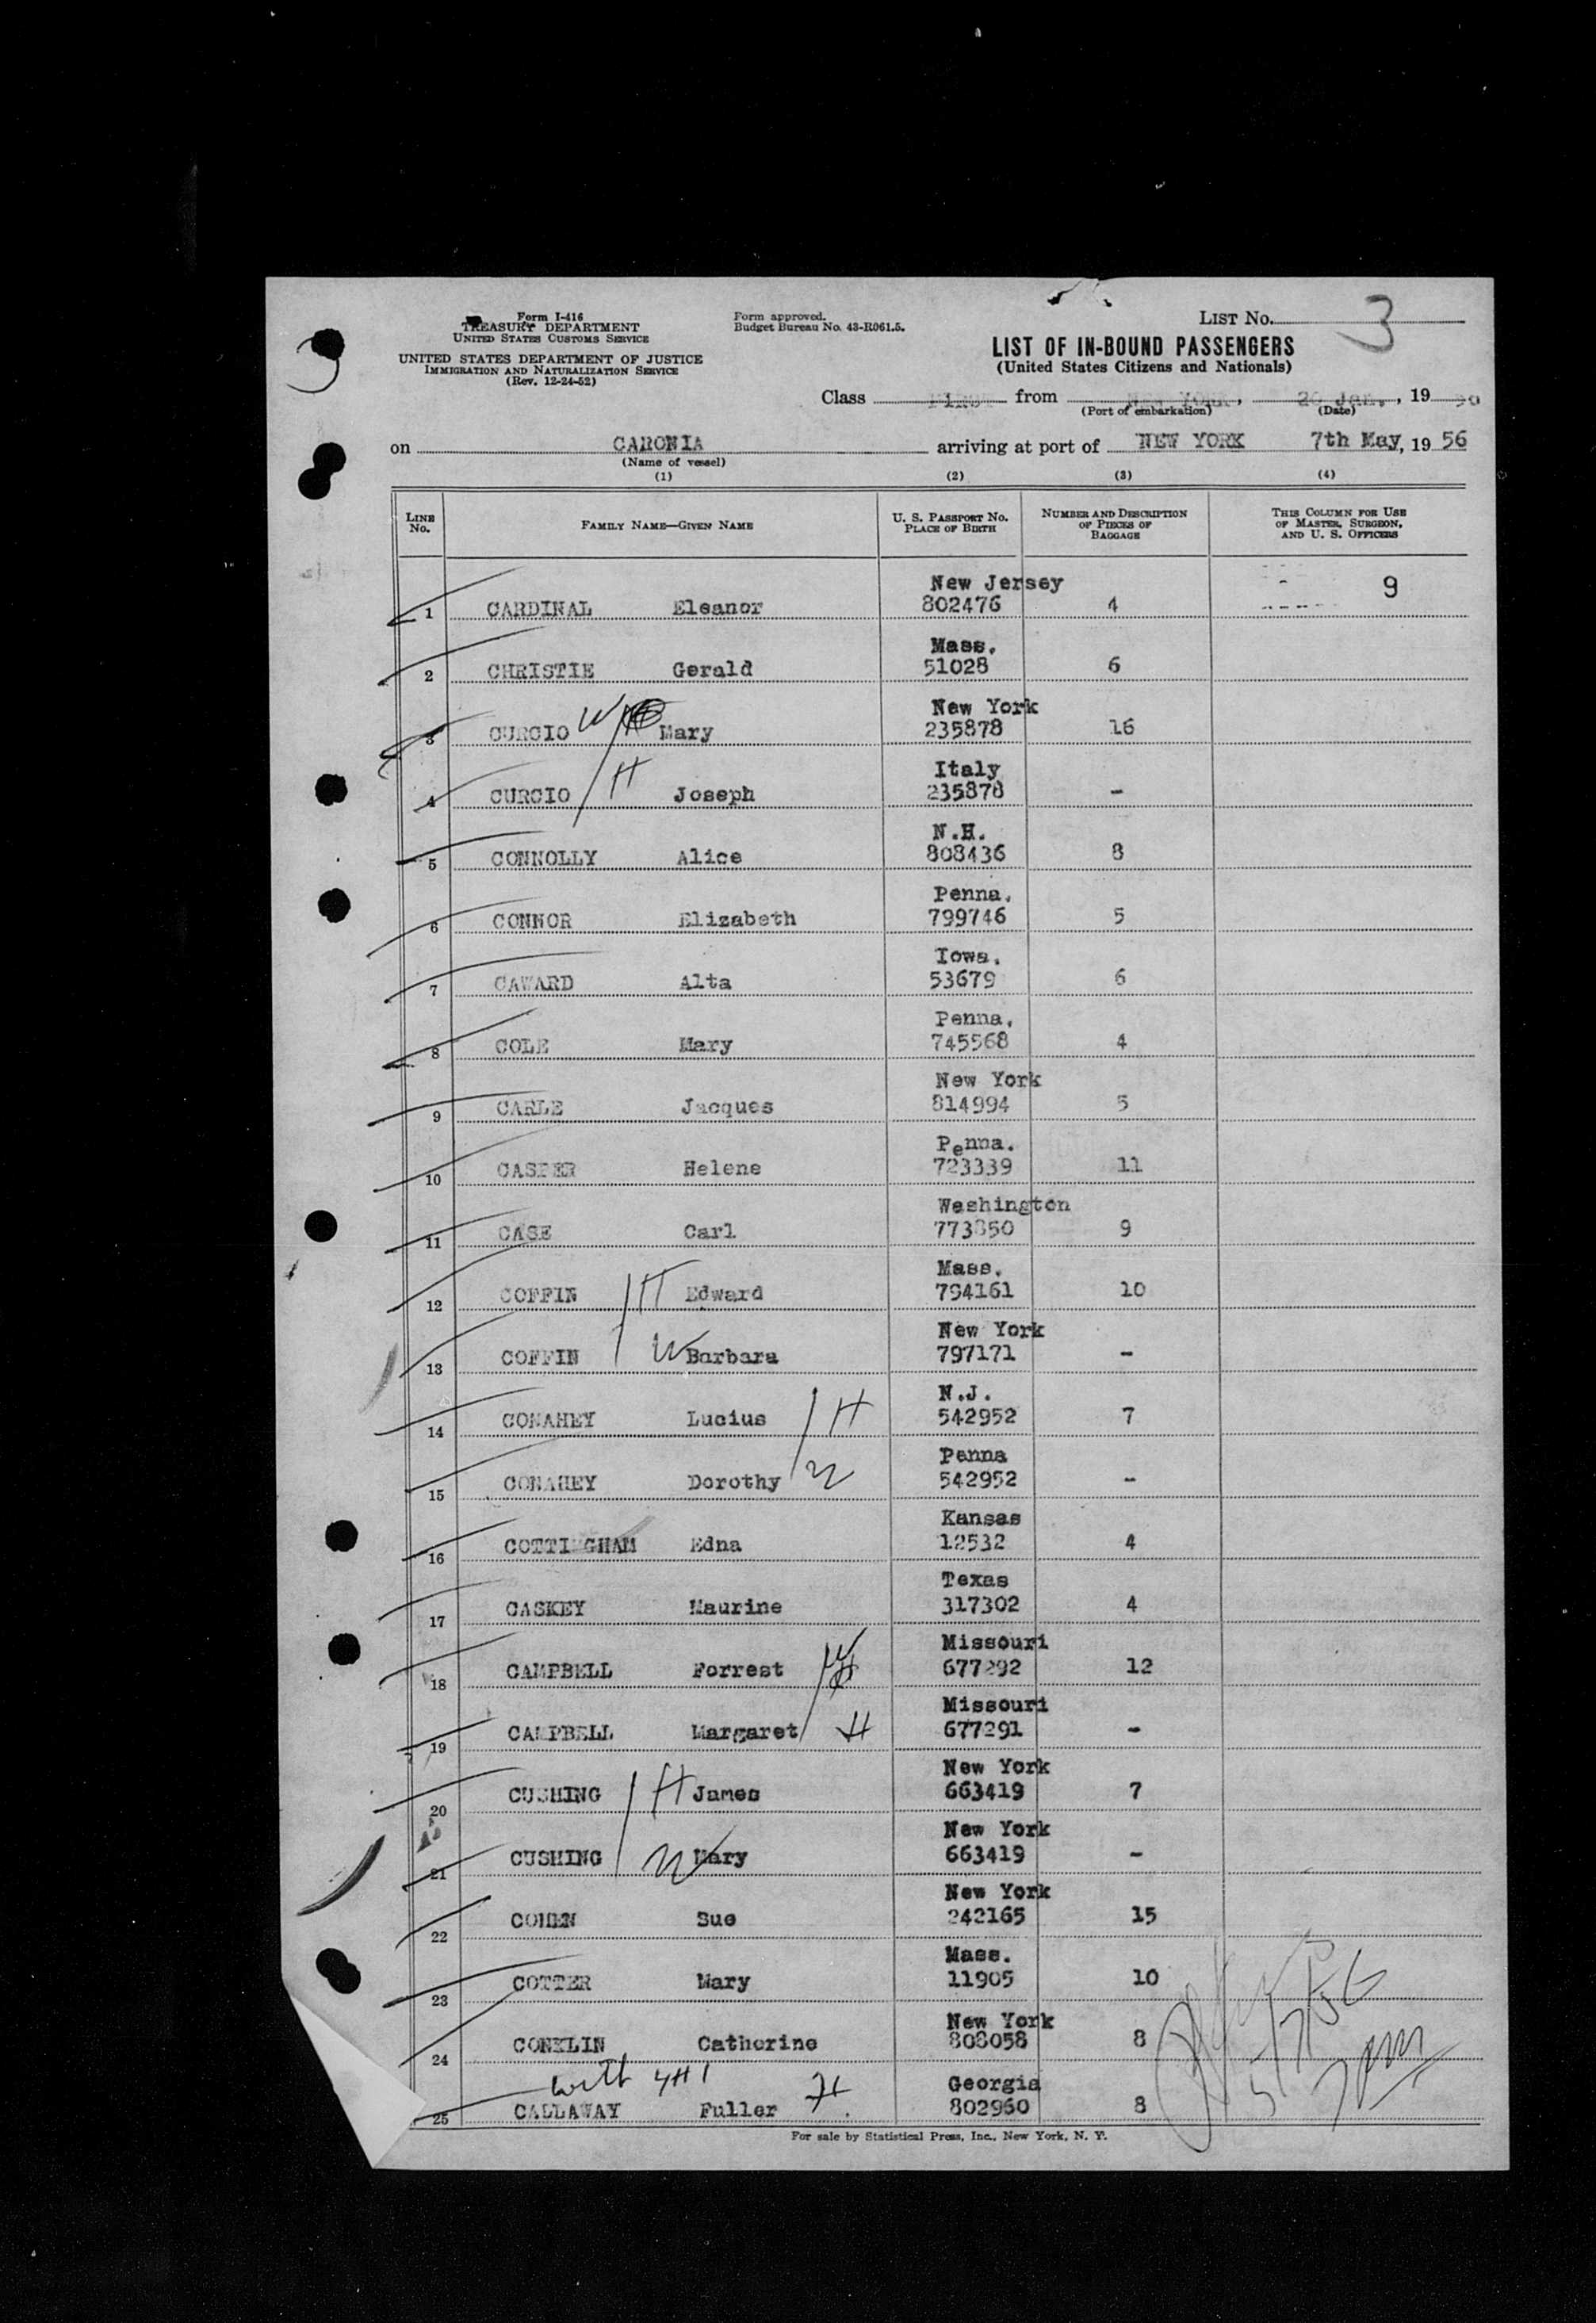 Form I-416
TREASURY DEPARTMENT
UNITED STATES CUSTOMS SERVICE
UNITED STATES DEPARTMENT OF JUSTICE
IMMIGRATION AND NATURALIZATION SERVICE
(Rev. 12-24-52)
Form approved.
Budget Bureau No. 43-R061.5.
LIST No. 3
LIST OF IN-BOUND PASSENGERS
(United States Citizens and Nationals)
Class First from New York, 26 Jan., 19
(Port of embarkation) (Date)
on CARONIA arriving at port of NEW YORK 7th May, 19 56
(Name of vessel)
(1) (2) (3) (4)
LINE No. FAMILY NAME—GIVEN NAME U. S. PASSPORT No. PLACE OF BIRTH NUMBER AND DESCRIPTION OF PIECES OF BAGGAGE THIS COLUMN FOR USE OF MASTER, SURGEON, AND U. S. OFFICERS
New Jersey 9
1 CARDINAL Eleanor 802476 4
Mass.
2 CHRISTIE Gerald 51028 6
New York
3 CURCIO W Mary 235878 16
Italy
4 CURCIO H Joseph 235878 -
N.H.
5 CONNOLLY Alice 808436 8
Penna.
6 CONNOR Elizabeth 799746 5
Iowa.
7 CAWARD Alta 53679 6
Penna.
8 COLE Mary 745568 4
New York
9 CARLE Jacques 814994 5
Penna.
10 CASPER Helene 723339 11
Washington
11 CASE Carl 773850 9
Mass.
12 COFFIN H Edward 794161 10
New York
13 COFFIN W Barbara 797171 -
N.J.
14 CONAHEY Lucius H 542952 7
Penna
15 CONAHEY Dorothy W 542952 -
Kansas
16 COTTINGHAM Edna 12532 4
Texas
17 CASKEY Maurine 317302 4
Missouri
18 CAMPBELL Forrest W 677292 12
Missouri
19 CAMPBELL Margaret H 677291 -
New York
20 CUSHING H James 663419 7
New York
21 CUSHING W Mary 663419 -
New York
22 COHEN Sue 242165 15
Mass.
23 COTTER Mary 11905 10
New York
24 CONKLIN Catherine 808058 8
with 4H1 Georgia
25 CALLAWAY Fuller H. 802960 8
5/7/56
7 pm
For sale by Statistical Press, Inc., New York, N. Y.